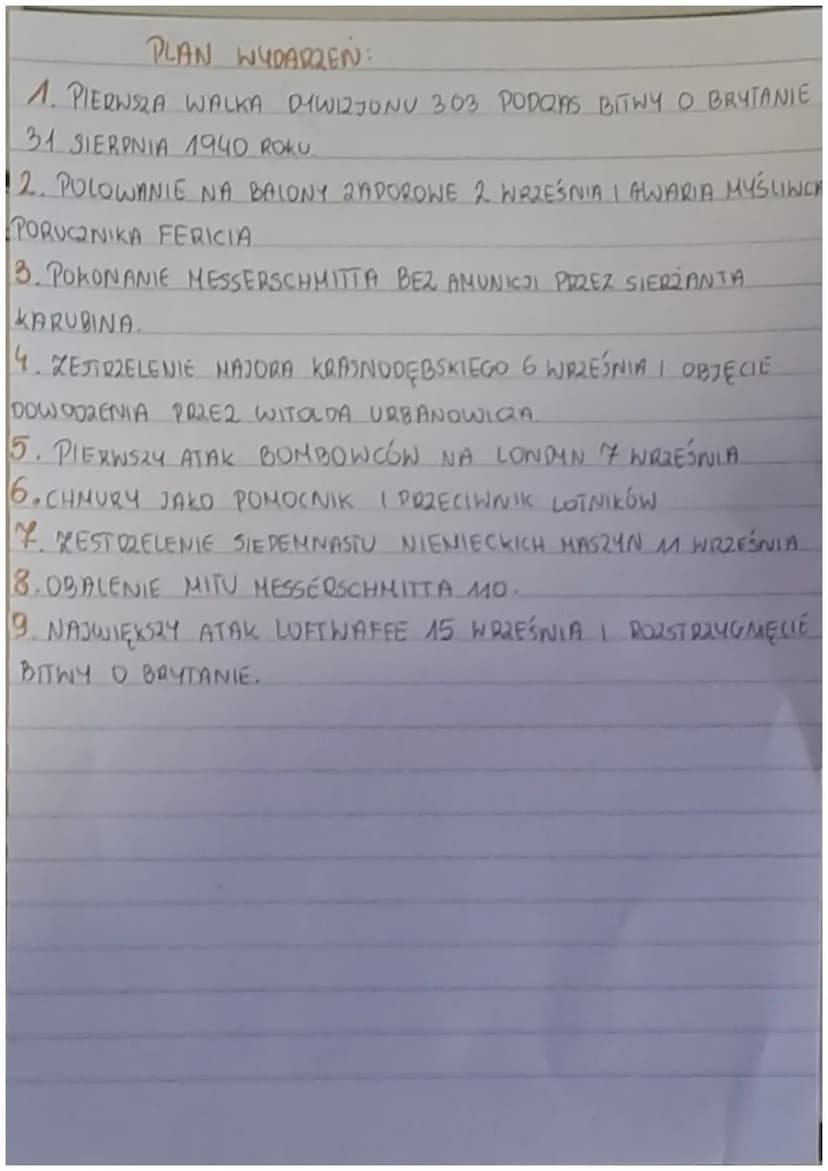 PLAN WYDARZEŃ:
1. PIERWSZA WALKA DYWIZJONU 303 PODCZAS BITWY O BRYTANIE
31 SIERPNIA 1940 ROKU.
2. POLOWANIE NA BALONY ZAPOROWE 2 WRZEŚNIA I AWARIA MYŚLIWCA
PORUCZNIKA FERICIA
3. POKONANIE MESSERSCHMITTA BEZ AMUNICJI PRZEZ SIERŻANTA
KARUBINA.
4. ZESTRZELENIE MAJORA KRASNODĘBSKIEGO 6 WRZEŚNIA I OBJĘCIE
DOWODZENIA PRZEZ WITOLDA URBANOWICZA
5. PIERWSZY ATAK BOMBOWCÓW NA LONDYN 7 WRZEŚNIA
6. CHMURY JAKO POMOCNIK I PRZECIWNIK LOTNIKÓW
7. ZESTRZELENIE SIEDEMNASTU NIEMIECKICH MASZYN 11 WRZEŚNIA
8. OBALENIE MITU MESSERSCHMITTA 110.
9. NAJWIĘKSZY ATAK LUFTWAFFE 15 WRZEŚNIA I ROZSTRZYGNIĘCIE
BITWY O BRYTANIE.